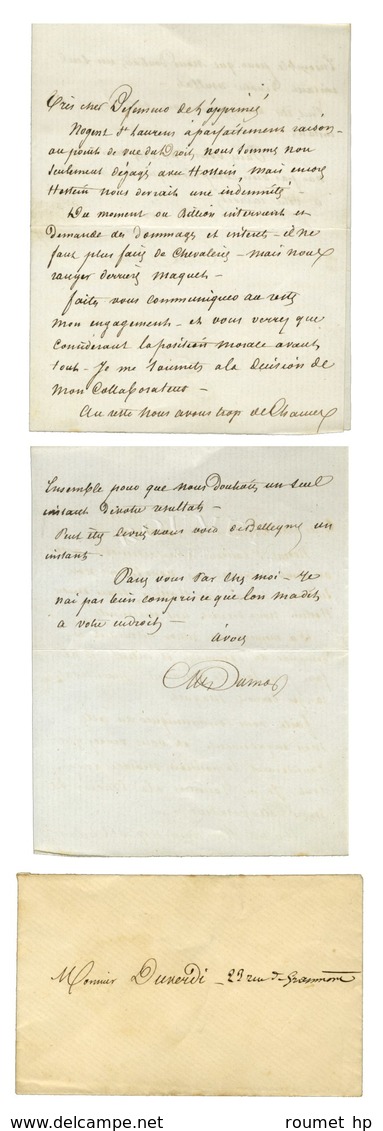 Très cher Defenseur de l'opprimé
Nogent St Laurens a parfaitement raison
au point de vue du Droit, nous sommes non
seulement dégagés avec Hostein, mais encore
Hostein nous devrait une indemnité.
Du moment ou Billion intervient et
demande des dommages et interets - il ne
faut plus faire de Chevalerie - mais nous
ranger derriere Maquet -
faites vous communiquer au reste
mon engagement - et vous verrez que
considerant la position morale avant
tout - Je me soumets a la décision de
mon Collaborateur -
Au reste nous avons trop de Chances
Ensemble pour que nous doutions un seul
instant du resultat -
Peut etre verrez vous de Belleyme un
instant
Passez vous par chez moi - Je
n'ai pas bien compris ce que l'on m'a dit
a votre endroit -
à vous
Alex Dumas
Monsieur Duverdi - 23 rue de Grammont
www.delcampe.net
roumet hp